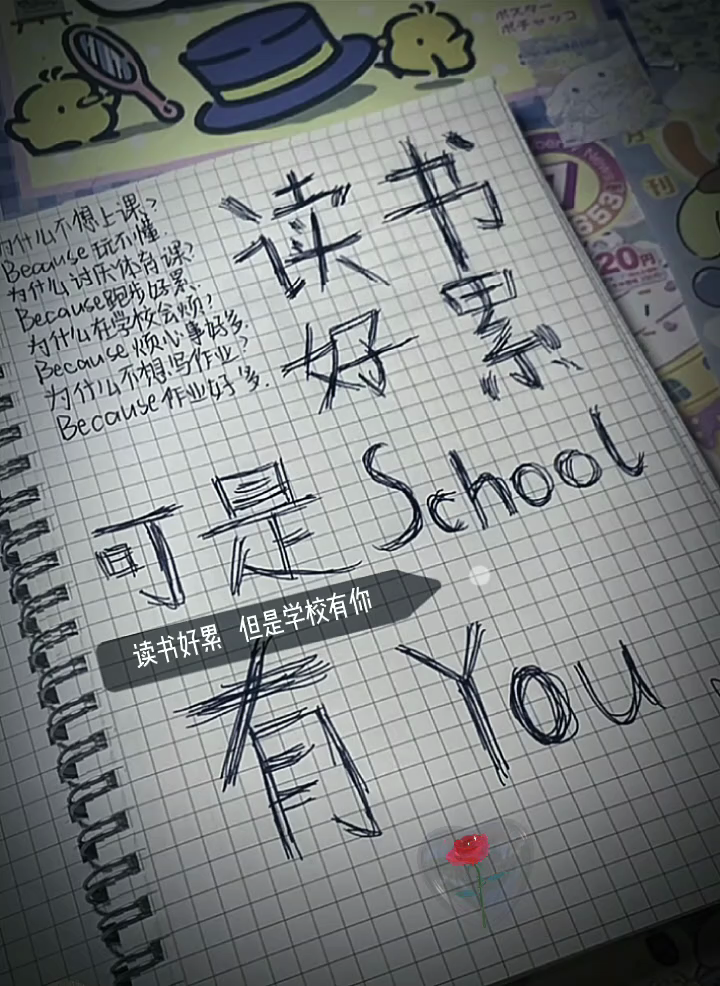 ポスター
ポチャッコ
为什么不想上课?
Because 玩不懂
为什么讨厌体育课?
Because跑步好累.
为什么在学校会烦?
Because 烦心事好多.
为什么不想写作业?
Because 作业好多.
读书
好累
可是 School
读书好累 但是学校有你
有 You
20円